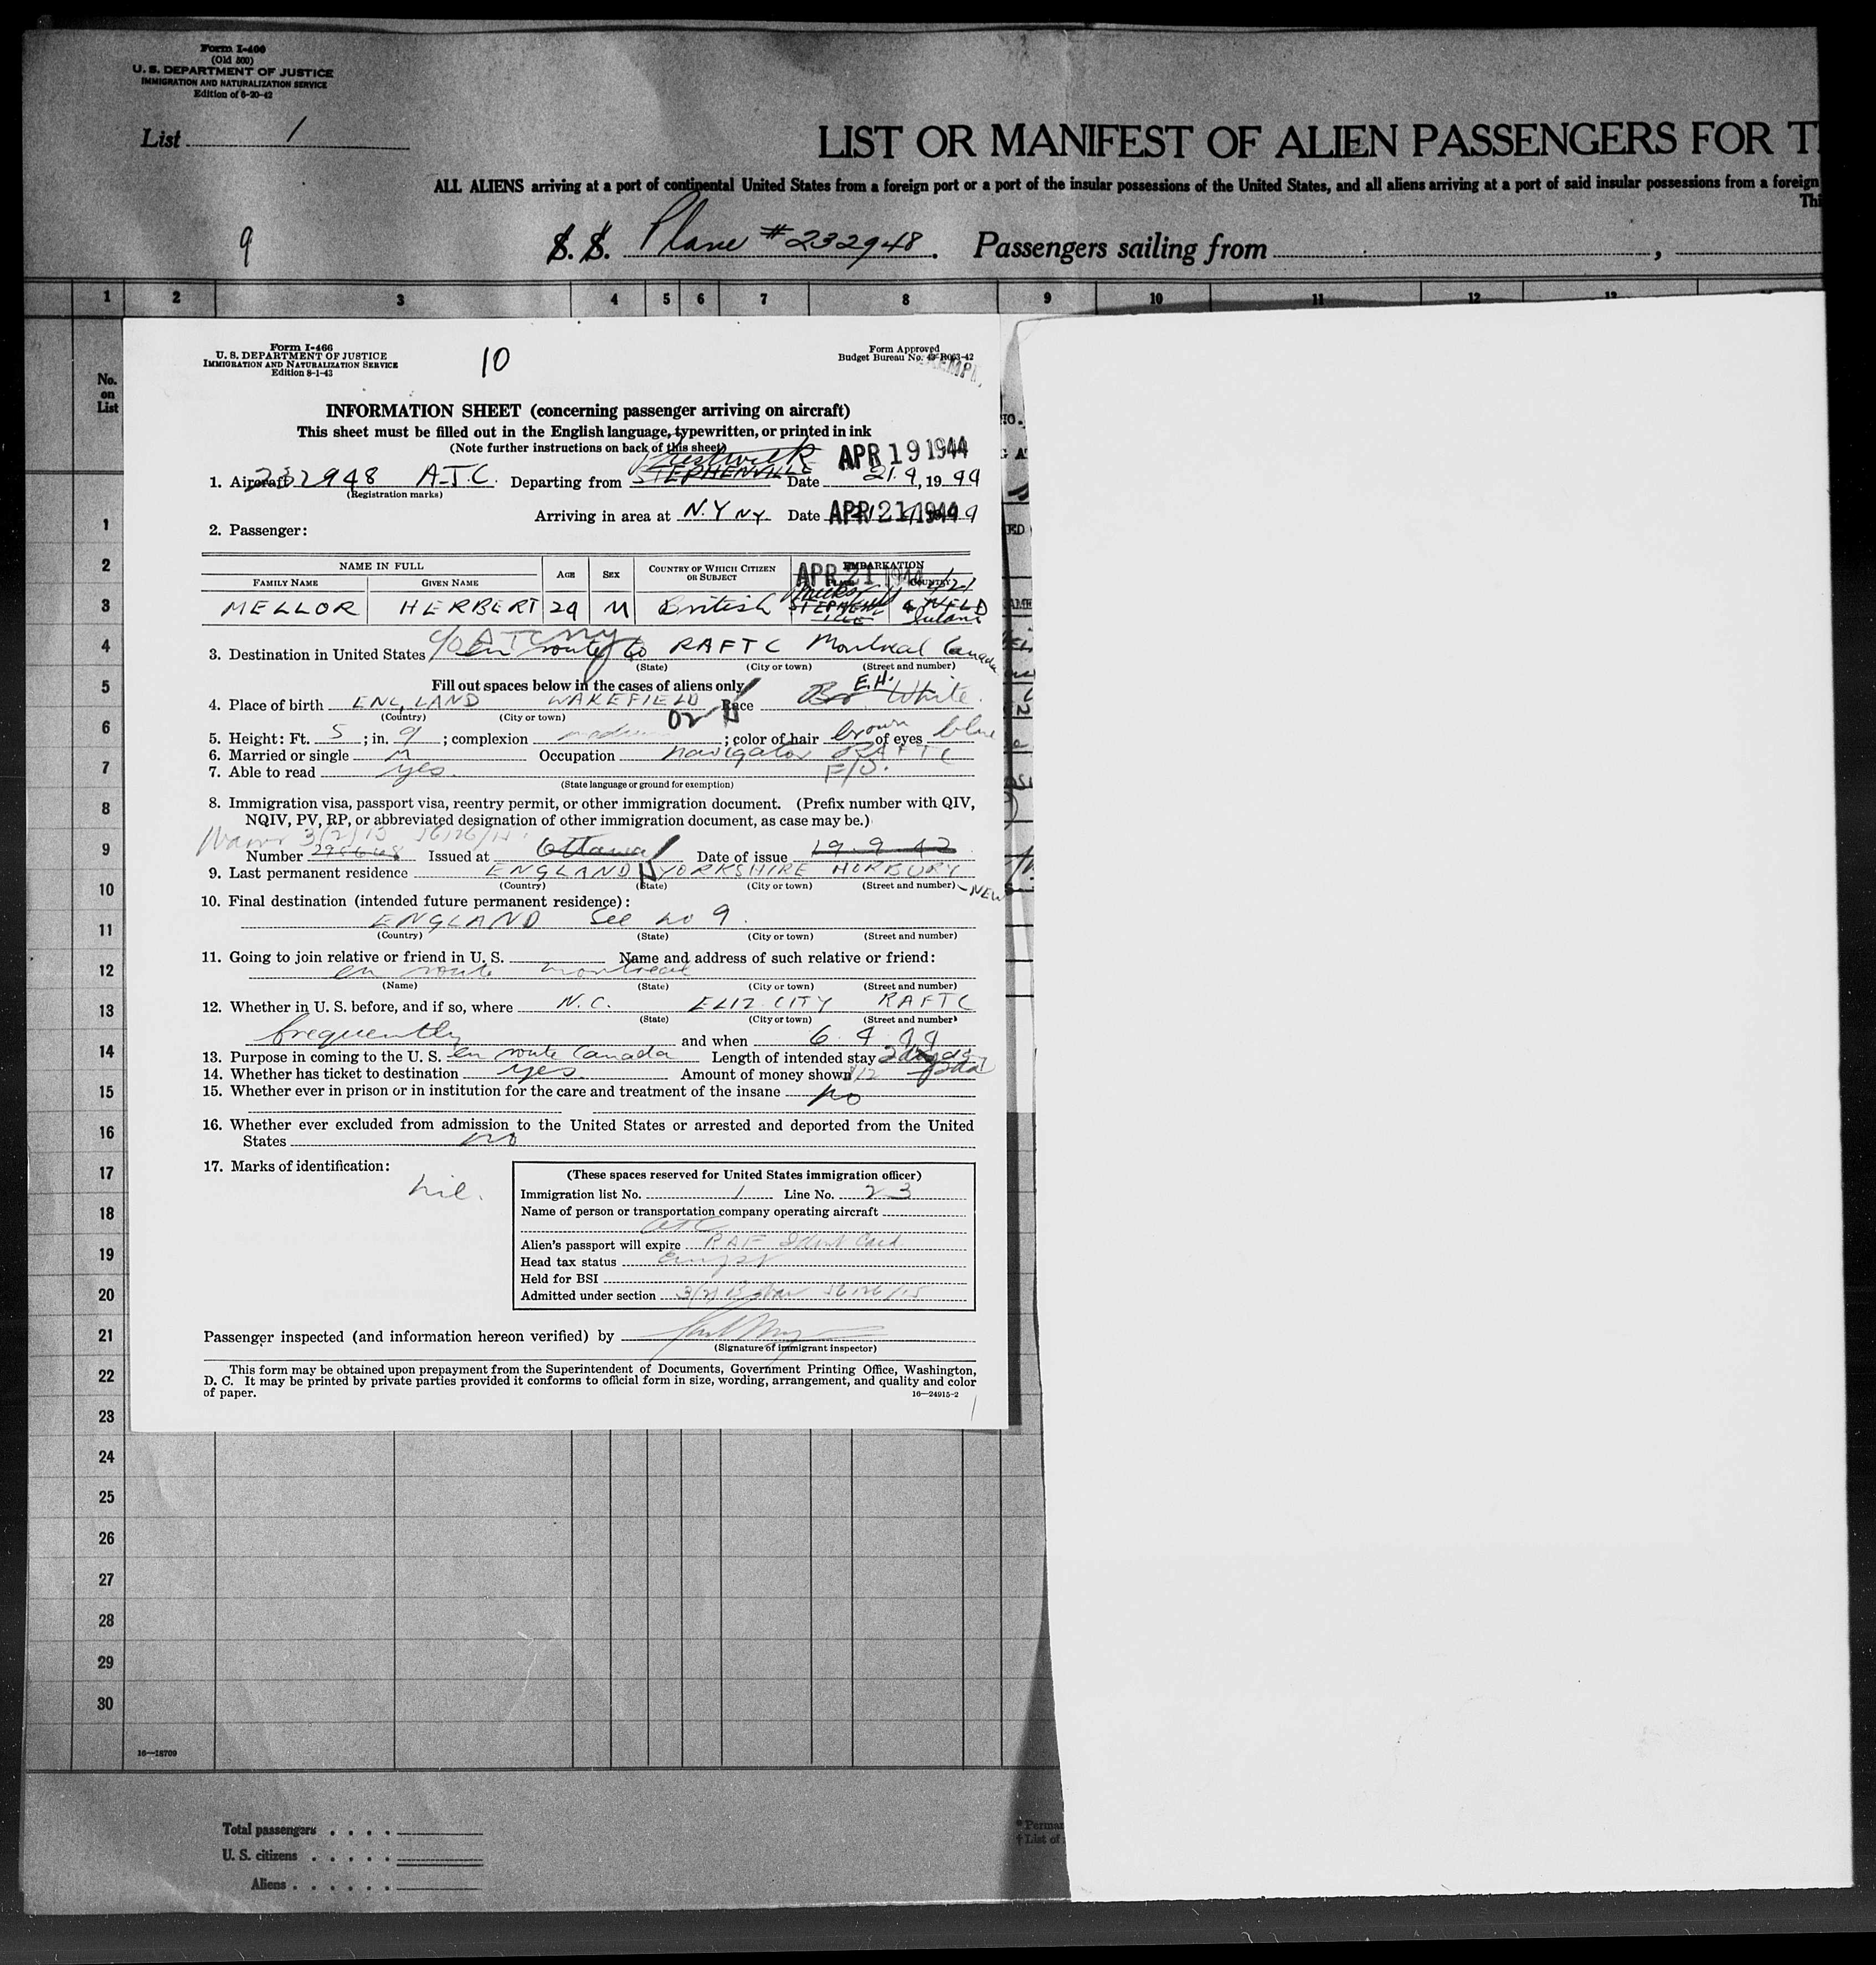 Form I-400
(Old 500)
U. S. DEPARTMENT OF JUSTICE
IMMIGRATION AND NATURALIZATION SERVICE
Edition of 6-20-42
List 1
LIST OR MANIFEST OF ALIEN PASSENGERS FOR T
ALL ALIENS arriving at a port of continental United States from a foreign port or a port of the insular possessions of the United States, and all aliens arriving at a port of said insular possessions from a foreign
Thi
9
S. S. Plane #232948. Passengers sailing from ,
1 2 3 4 5 6 7 8 9 10 11 12 13
No. on List
Form I-466
U. S. DEPARTMENT OF JUSTICE
IMMIGRATION AND NATURALIZATION SERVICE
Edition 8-1-43
10
Form Approved
Budget Bureau No. 43-R063-42
INFORMATION SHEET (concerning passenger arriving on aircraft)
This sheet must be filled out in the English language, typewritten, or printed in ink
(Note further instructions on back of this sheet)
Prestwick APR 19 1944
1. Aircraft 232948 A.T.C. Departing from STEPHENVILLE Date 21.4, 1944
(Registration marks)
Arriving in area at N.Y NY Date APR 21 1944
2. Passenger:
NAME IN FULL AGE SEX COUNTRY OF WHICH CITIZEN OR SUBJECT EMBARKATION
FAMILY NAME GIVEN NAME PLACE COUNTRY
APR 21 1944
MELLOR HERBERT 29 M British
c/o ATC NY
3. Destination in United States en route to RAFTC Montreal Canada
(State) (City or town) (Street and number)
Fill out spaces below in the cases of aliens only
E.H.
4. Place of birth ENGLAND WAKEFIELD Race White
(Country) (City or town)
5. Height: Ft. 5; in. 9; complexion medium; color of hair brown of eyes blue
6. Married or single M Occupation navigator RAFTC
7. Able to read yes F/O.
(State language or ground for exemption)
8. Immigration visa, passport visa, reentry permit, or other immigration document. (Prefix number with QIV,
NQIV, PV, RP, or abbreviated designation of other immigration document, as case may be.)
3(2) 13 56126/15
Number Issued at Ottawa Date of issue 19-9-42
9. Last permanent residence ENGLAND YORKSHIRE HORBURY
(Country) (State) (City or town) (Street and number)
NEW
10. Final destination (intended future permanent residence):
ENGLAND See no 9.
(Country) (State) (City or town) (Street and number)
11. Going to join relative or friend in U. S. Name and address of such relative or friend:
en route montreal
(Name) (State) (City or town) (Street and number)
12. Whether in U. S. before, and if so, where N.C. ELIZ. CITY RAFTC
(State) (City or town) (Street and number)
frequently and when 6 4 44
13. Purpose in coming to the U. S. en route Canada Length of intended stay 2 days
14. Whether has ticket to destination yes. Amount of money shown $12
15. Whether ever in prison or in institution for the care and treatment of the insane no
16. Whether ever excluded from admission to the United States or arrested and deported from the United
States no
17. Marks of identification:
nil.
(These spaces reserved for United States immigration officer)
Immigration list No. 1 Line No. 23
Name of person or transportation company operating aircraft
ATC
Alien's passport will expire RAF Ident Card
Head tax status Exempt
Held for BSI
Admitted under section 3(2) 56126/15
Passenger inspected (and information hereon verified) by
(Signature of immigrant inspector)
This form may be obtained upon prepayment from the Superintendent of Documents, Government Printing Office, Washington,
D. C. It may be printed by private parties provided it conforms to official form in size, wording, arrangement, and quality and color
of paper.
16—24915-2
1
2
3
4
5
6
7
8
9
10
11
12
13
14
15
16
17
18
19
20
21
22
23
24
25
26
27
28
29
30
16—18709
Total passengers
U. S. citizens
Aliens
* Perma
† List of